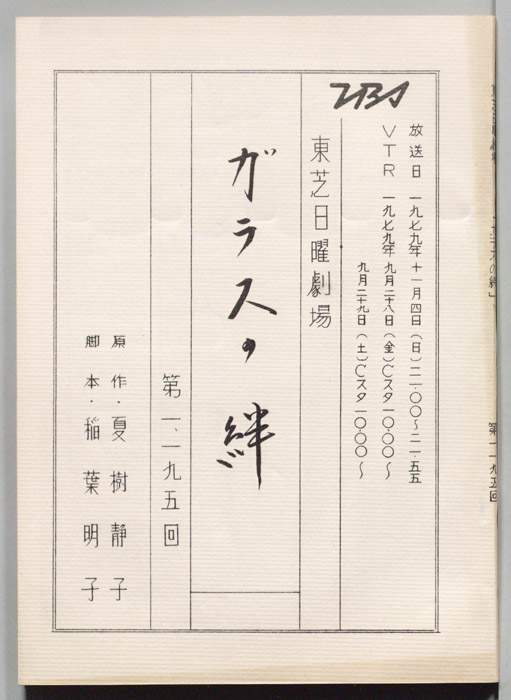 TBS
放送日 一九七九年十一月四日(日)二一.〇〇~二一.五五
VTR 一九七九年九月二十八日(金)Cスタ一〇.〇〇~
九月二十九日(土)Cスタ一〇.〇〇~
東芝日曜劇場
ガラスの絆
第一、一九五回
原作・夏樹静子
脚本・稲葉明子